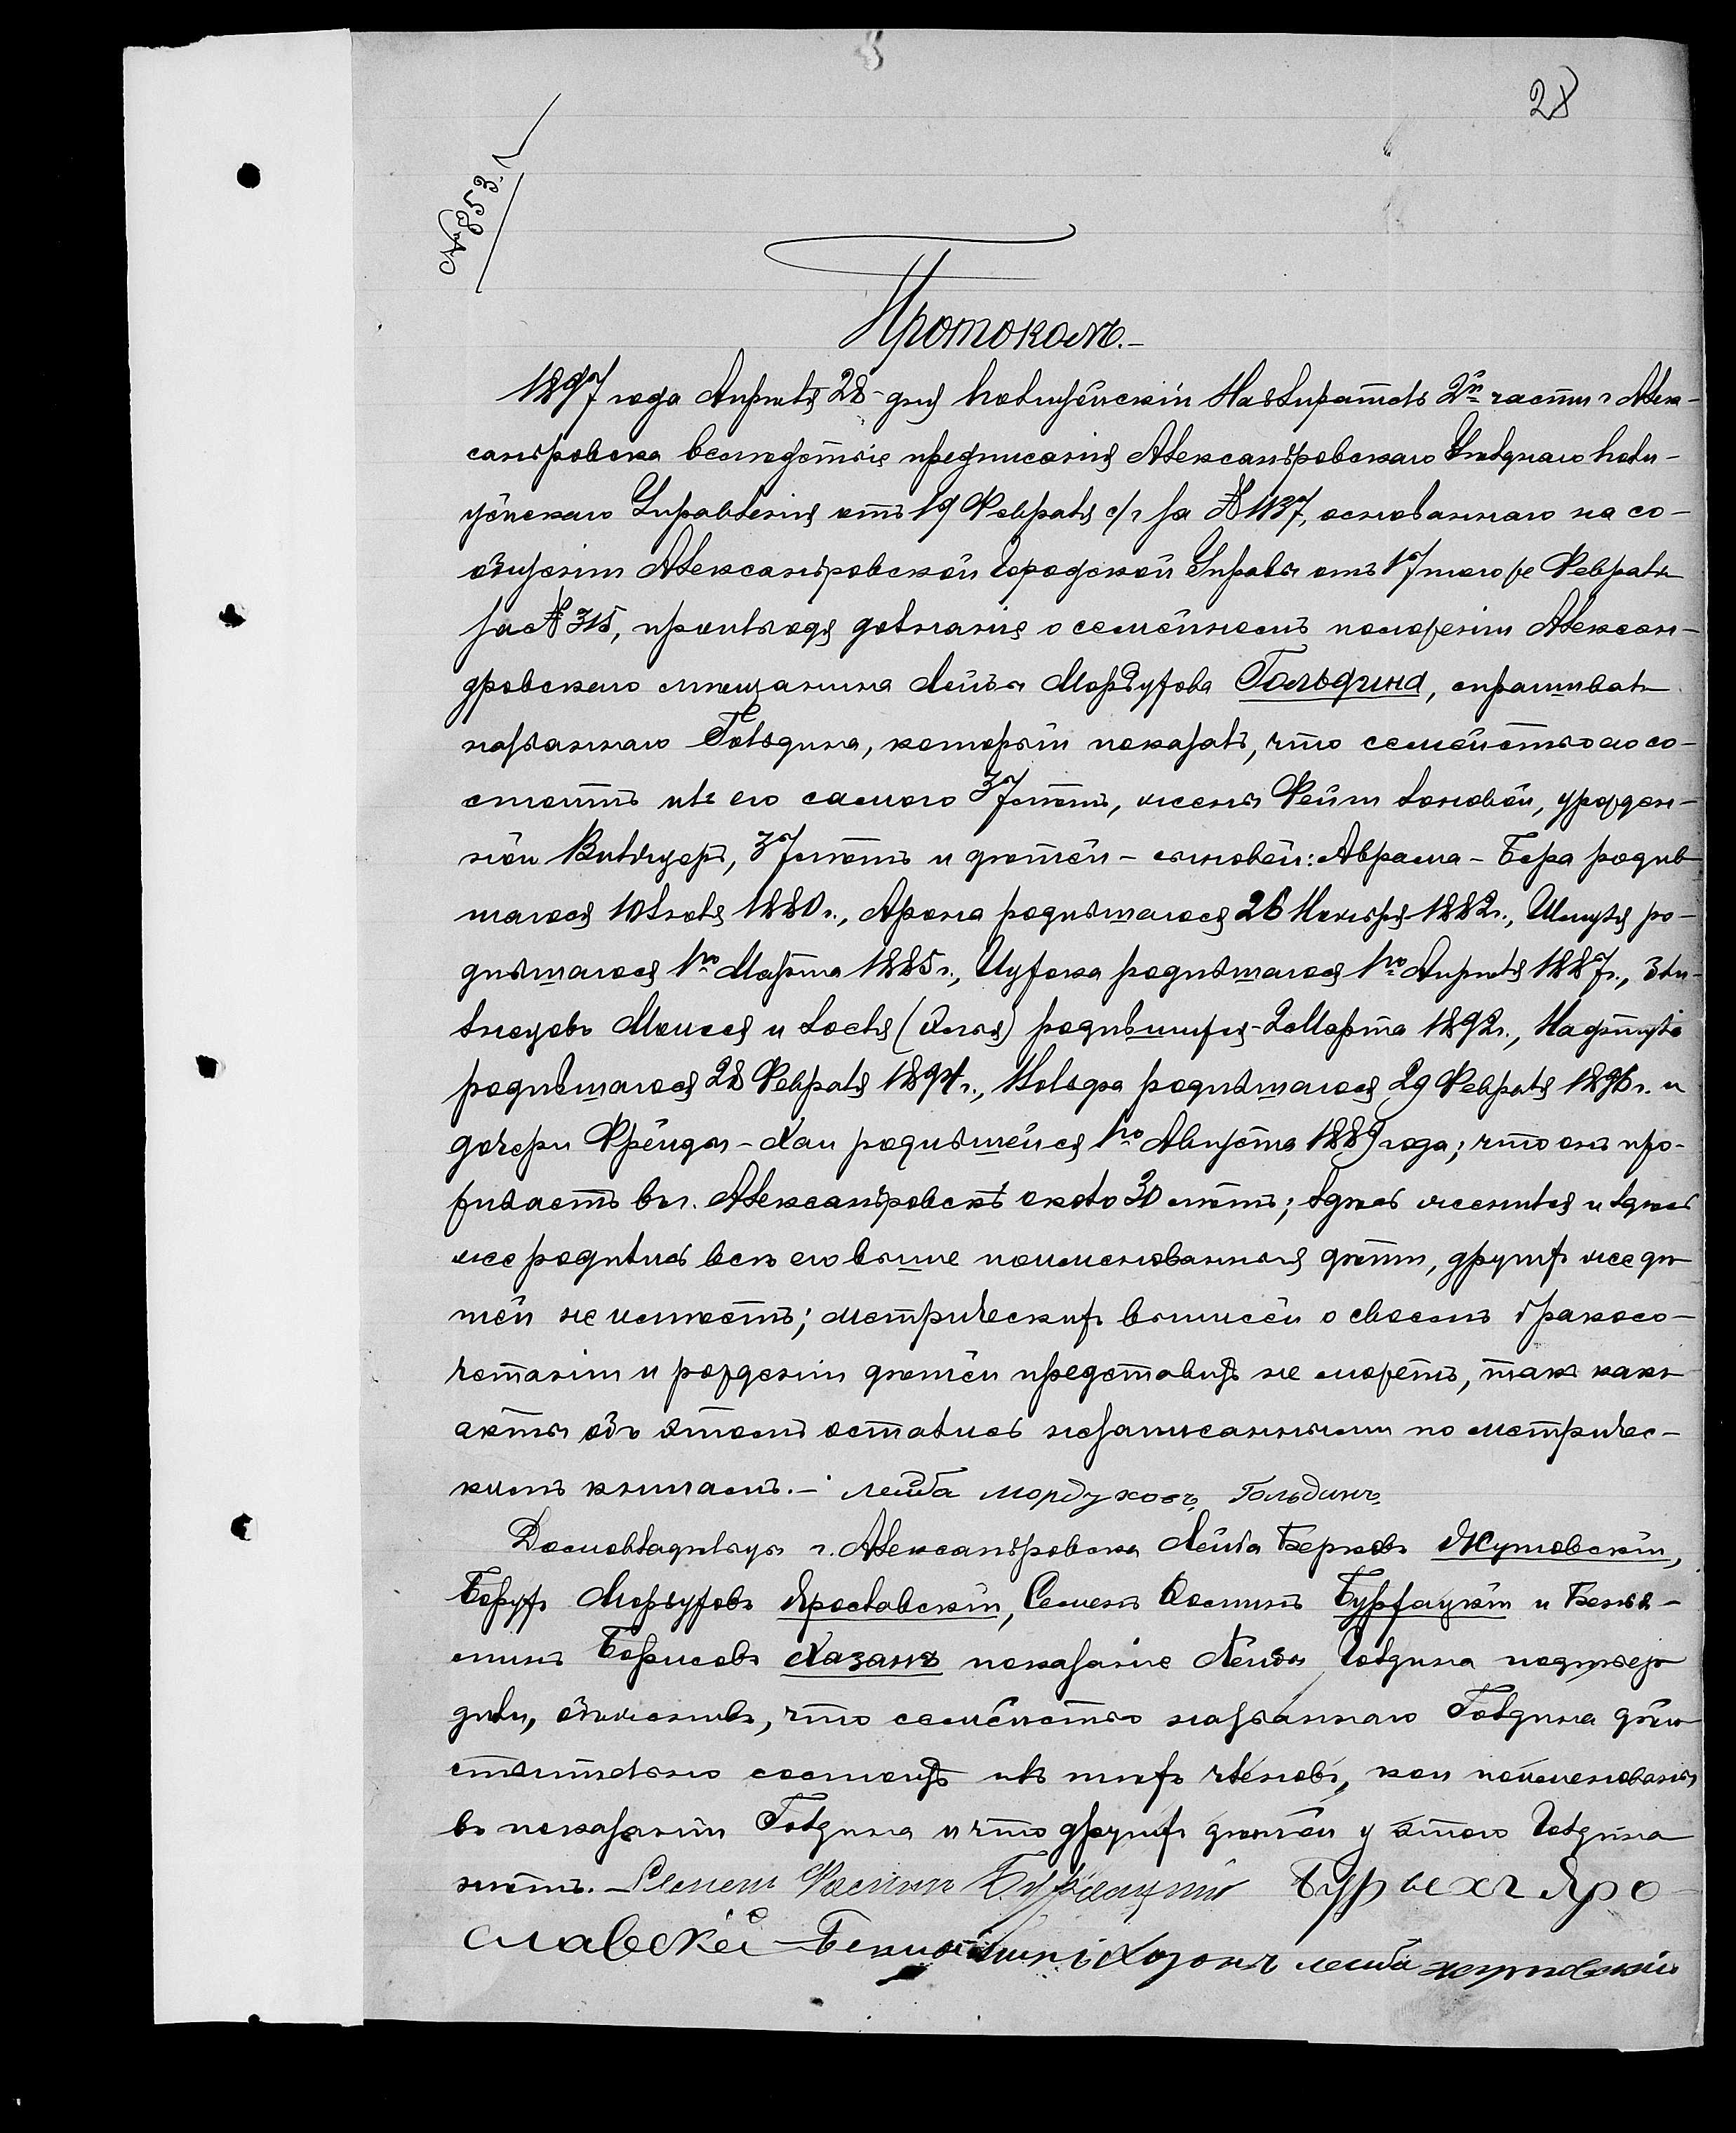 28
№ 853.
Протоколъ.-
1897 года Апрѣля 28-дня Полицейскій Надзиратель 2й части г Алек-
сандровска вслѣдствіе предписанія Александровскаго Уѣзднаго Поли-
цейскаго Управленія отъ 19 Февраля с/г за № 1137, основаннаго на со-
общеніи Александровской Городской Управы отъ 17 того же Февраля
за № 315, производя дознаніе о семейномъ положеніи Алексан-
дровскаго мѣщанина Лейбы Мордухова Гольдина, спрашивалъ
названнаго Гольдина, который показалъ, что семейство его со-
стоитъ изъ его самого 37 лѣтъ, жены Фейги, урожден-
ной, 37 лѣтъ и дѣтей - сыновей: Аврама-Бера родив
шагося 10 Іюля 1880 г., Арона родившагося 26 Ноября 1882 г., Шмуля ро-
дившагося 1го Марта 1885 г., Ицхока родившагося 1го Апрѣля 1887 г., Бли-
знецовъ Моисея и Іоселя () родившихся 2 Марта 1892 г.,
родившагося 28 Февраля 1894 г., родившагося 29 Февраля 1896 г. и
дочери Фрейды-Хаи родившейся 1го Августа 1889 года; что онъ про-
живаетъ въ г. Александровскѣ около 30 лѣтъ; здѣсь женился и здѣсь
же родились всѣ его выше поименованныя дѣти, другихъ же дѣ
тей не имѣетъ; метрическихъ выписей о своемъ бракосо-
четаніи и рожденіи дѣтей представить не можетъ, такъ какъ
акты объ этомъ остались незаписанными по метричес-
кимъ книгамъ.- лейба мордуховъ Гольдинъ
Домовладѣльцы г. Александровска Лейба Берковъ Жутовскій,
Борухъ Мордуховъ Ярославскій, Семенъ Бурхацкій и Бенья-
минъ Борисовъ Хазанъ показаніе Лейбы Голдина подтвер
дили, объяснивъ, что семейство названнаго Голдина дѣй
ствительно состоитъ изъ тѣхъ членовъ, кои поименованы
въ показаніи Голдина и что другихъ дѣтей у этого Голдина
нѣтъ. Семенъ Бурхацкій Бурыхъ Яро-
славскей Хозонъ лейба жутовскій